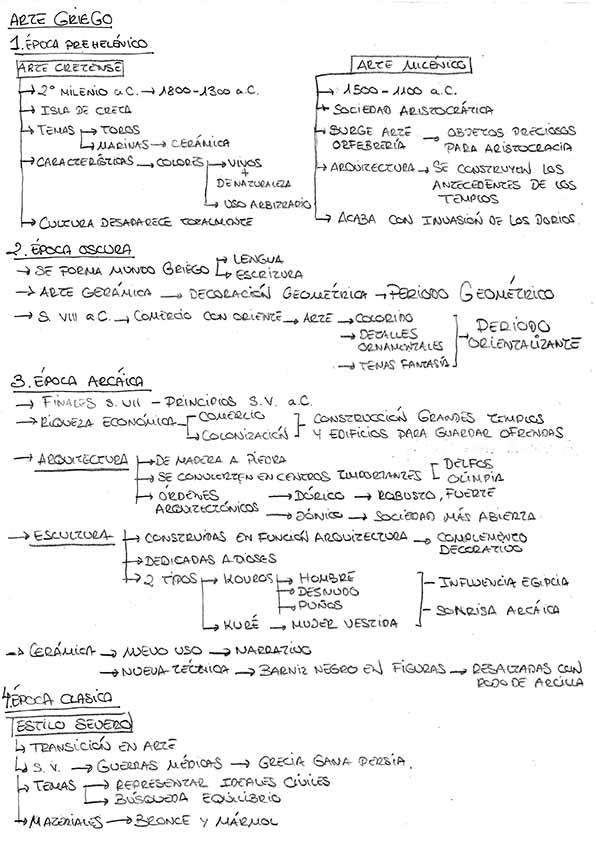 ARTE GRIEGO
1. ÉPOCA PREHELÉNICO
ARTE CRETENSE
→ 2º MILENIO a.C. → 1800-1300 a.C.
→ ISLA DE CRETA
→ TEMAS → TOROS
→ MARINAS → CERÁMICA
→ CARACTERÍSTICAS → COLORES → VIVOS
+
DE NATURALEZA
→ USO ARBITRARIO
→ CULTURA DESAPARECE TOTALMENTE
ARTE MICÉNICO
→ 1500-1100 a.C.
→ SOCIEDAD ARISTOCRÁTICA
→ SURGE ARTE ORFEBRERÍA → OBJETOS PRECIOSOS PARA ARISTOCRACIA
→ ARQUITECTURA → SE CONSTRUYEN LOS
ANTECEDENTES DE LOS
TEMPLOS
→ ACABA CON INVASIÓN DE LOS DORIOS.
2. ÉPOCA OSCURA
→ SE FORMA MUNDO GRIEGO → LENGUA
→ ESCRITURA
→ ARTE CERÁMICA → DECORACIÓN GEOMÉTRICA → PERÍODO GEOMÉTRICO
→ S. VIII a.C. → COMERCIO CON ORIENTE → ARTE → COLORIDO
→ DETALLES ORNAMENTALES
→ TEMAS FANTASÍA
→ PERÍODO ORIENTALIZANTE
3. ÉPOCA ARCÁICA
→ FINALES S. VII - PRINCIPIOS S.V. a.C.
→ RIQUEZA ECONÓMICA → COMERCIO
→ COLONIZACIÓN
CONSTRUCCIÓN GRANDES TEMPLOS
Y EDIFICIOS PARA GUARDAR OFRENDAS.
→ ARQUITECTURA → DE MADERA A PIEDRA
→ SE CONVIERTEN EN CENTROS IMPORTANTES DELFOS
OLIMPIA
→ ÓRDENES ARQUITECTÓNICOS → DÓRICO → ROBUSTO, FUERTE
→ JÓNICO → SOCIEDAD MÁS ABIERTA
→ ESCULTURA → CONSTRUIDAS EN FUNCIÓN ARQUITECTURA → COMPLEMENTO DECORATIVO
→ DEDICADAS A DIOSES
→ 2 TIPOS → KOUROS → HOMBRE
→ DESNUDO
→ PUÑOS
→ KURÉ → MUJER VESTIDA
- INFLUENCIA EGIPCIA
- SONRISA ARCÁICA
→ CERÁMICA → NUEVO USO → NARRATIVO
→ NUEVA TÉCNICA → BARNIZ NEGRO EN FIGURAS → RESALTADAS CON
ROJO DE ARCILLA
4. ÉPOCA CLASICA
ESTILO SEVERO
→ TRANSICIÓN EN ARTE
→ S. V. → GUERRAS MÉDICAS → GRECIA GANA PERSIA.
→ TEMAS → REPRESENTAR IDEALES CIVILES
→ BÚSQUEDA EQUILIBRIO
→ MATERIALES → BRONCE Y MÁRMOL